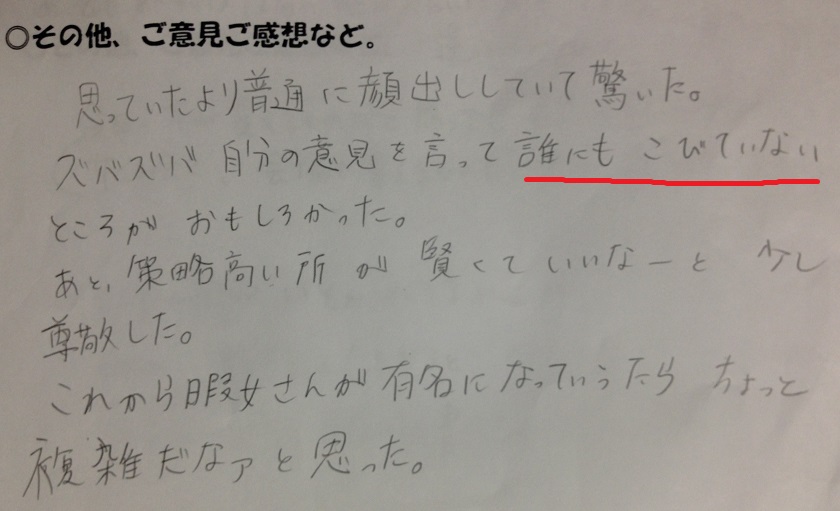 ○その他、ご意見ご感想など。
思っていたより普通に顔出ししていて驚いた。
ズバズバ自分の意見を言って誰にもこびていない
ところがおもしろかった。
あと、策略高い所が賢くていいなーと少し
尊敬した。
これから暇女さんが有名になっていったら ちょっと
複雑だなァと思った。